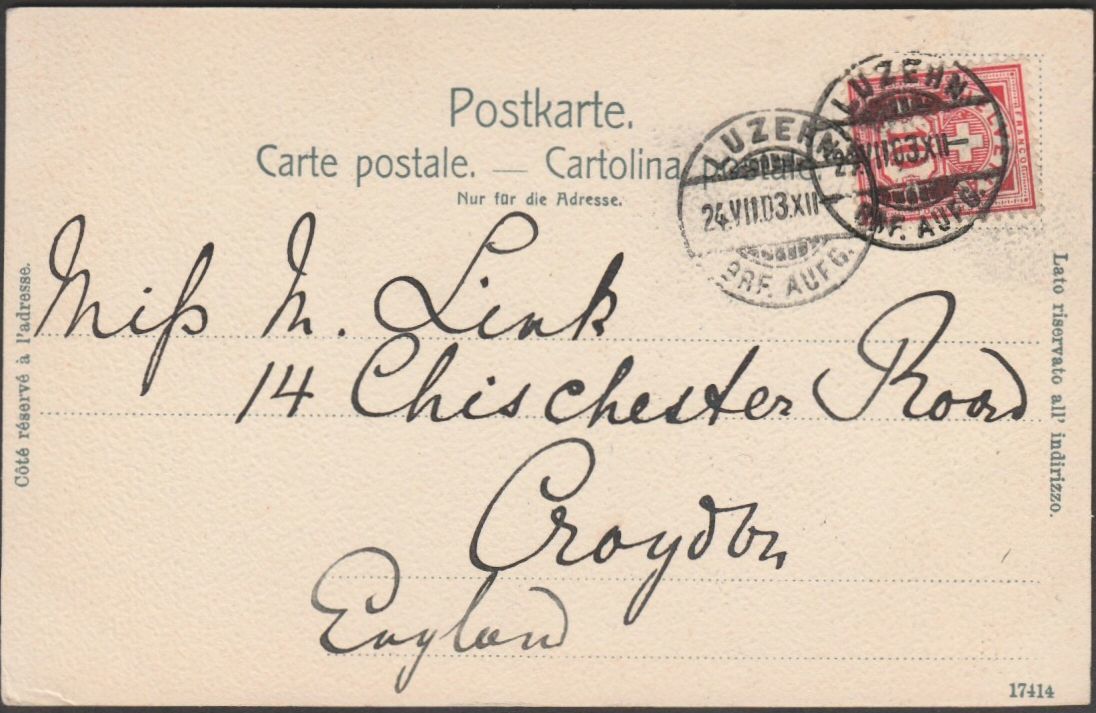 Postkarte.
Carte postale. — Cartolina postale.
Nur für die Adresse.
LUZERN
24.VII.03.XII—
BRF. AUFG.
LUZERN
24.VII.03.XII—
BRF. AUFG.
FRANCO
10
Côté réservé à l'adresse.
Lato riservato all' indirizzo.
Miß M. Link
14 Chischester Road
Croydon
England
17414